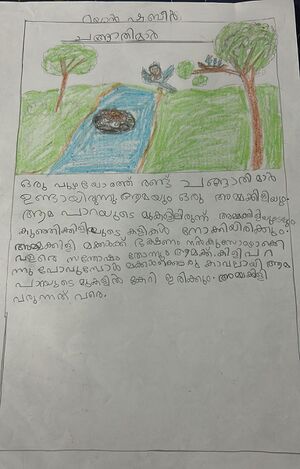 റയാൻ ഷബീർ
ചങ്ങാതിമാർ
ഒരു പുഴയോരത്ത് രണ്ട് ചങ്ങാതിമാർ
ഉണ്ടായിരുന്നു ആമയും ഒരു അമ്മക്കിളിയും.
ആമ പാറയുടെ മുകളിലിരുന്ന് അമ്മക്കിളിയുടെയും
കുഞ്ഞിക്കിളിയുടെ കളികൾ നോക്കിയിരിക്കും.
അമ്മക്കിളി മക്കൾക്ക് ഭക്ഷണം നൽകുമ്പോഴൊക്കെ
വളരെ സന്തോഷം തോന്നും ആമക്ക്. കിളി പറ
ന്നു പോവുമ്പോൾ മക്കൾക്കൊരു കാവലായി ആമ
പാറയുടെ മുകളിൽ കേറി ഇരിക്കും. അമ്മക്കിളി
വരുന്നത് വരെ.